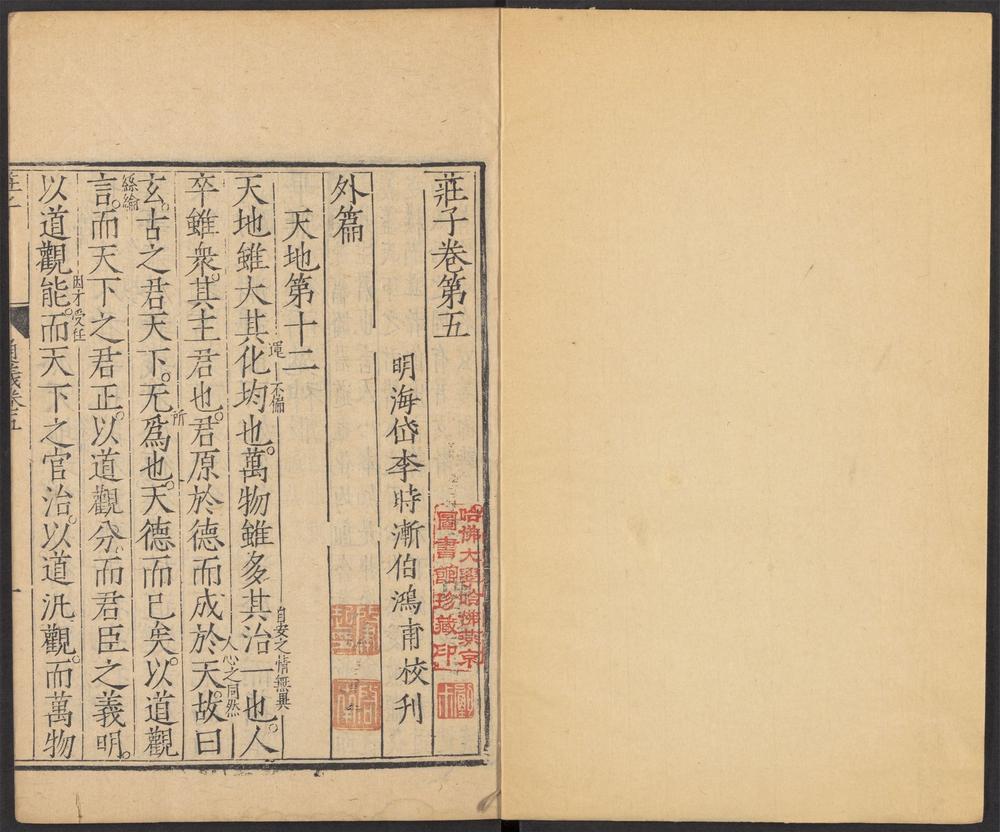 莊子卷第五
明海岱李時漸伯鴻甫校刊
外篇
天地第十二
天地雖大其化均也萬物雖多其治一也人
運
不偏
自安之情無異
卒雖衆其主君也君原於德而成於天故曰
所
人心之同然
玄古之君天下无爲也天德而已矣以道觀
言而天下之君正以道觀分而君臣之義明
絲綸
以道觀能而天下之官治以道汎觀而萬物
因才受任
哈佛大學哈佛燕京
圖書館珍藏印